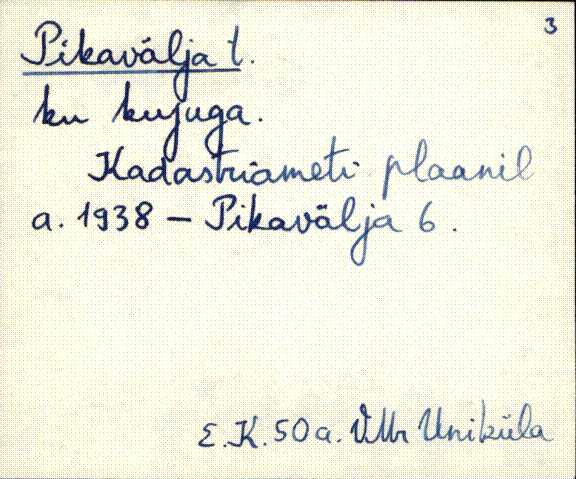 3
Pikavälja t.
ku kujuga.
Kadastriameti plaanil
a. 1938 – Pikavälja 6.
E.K. 50 a. VMr Uniküla